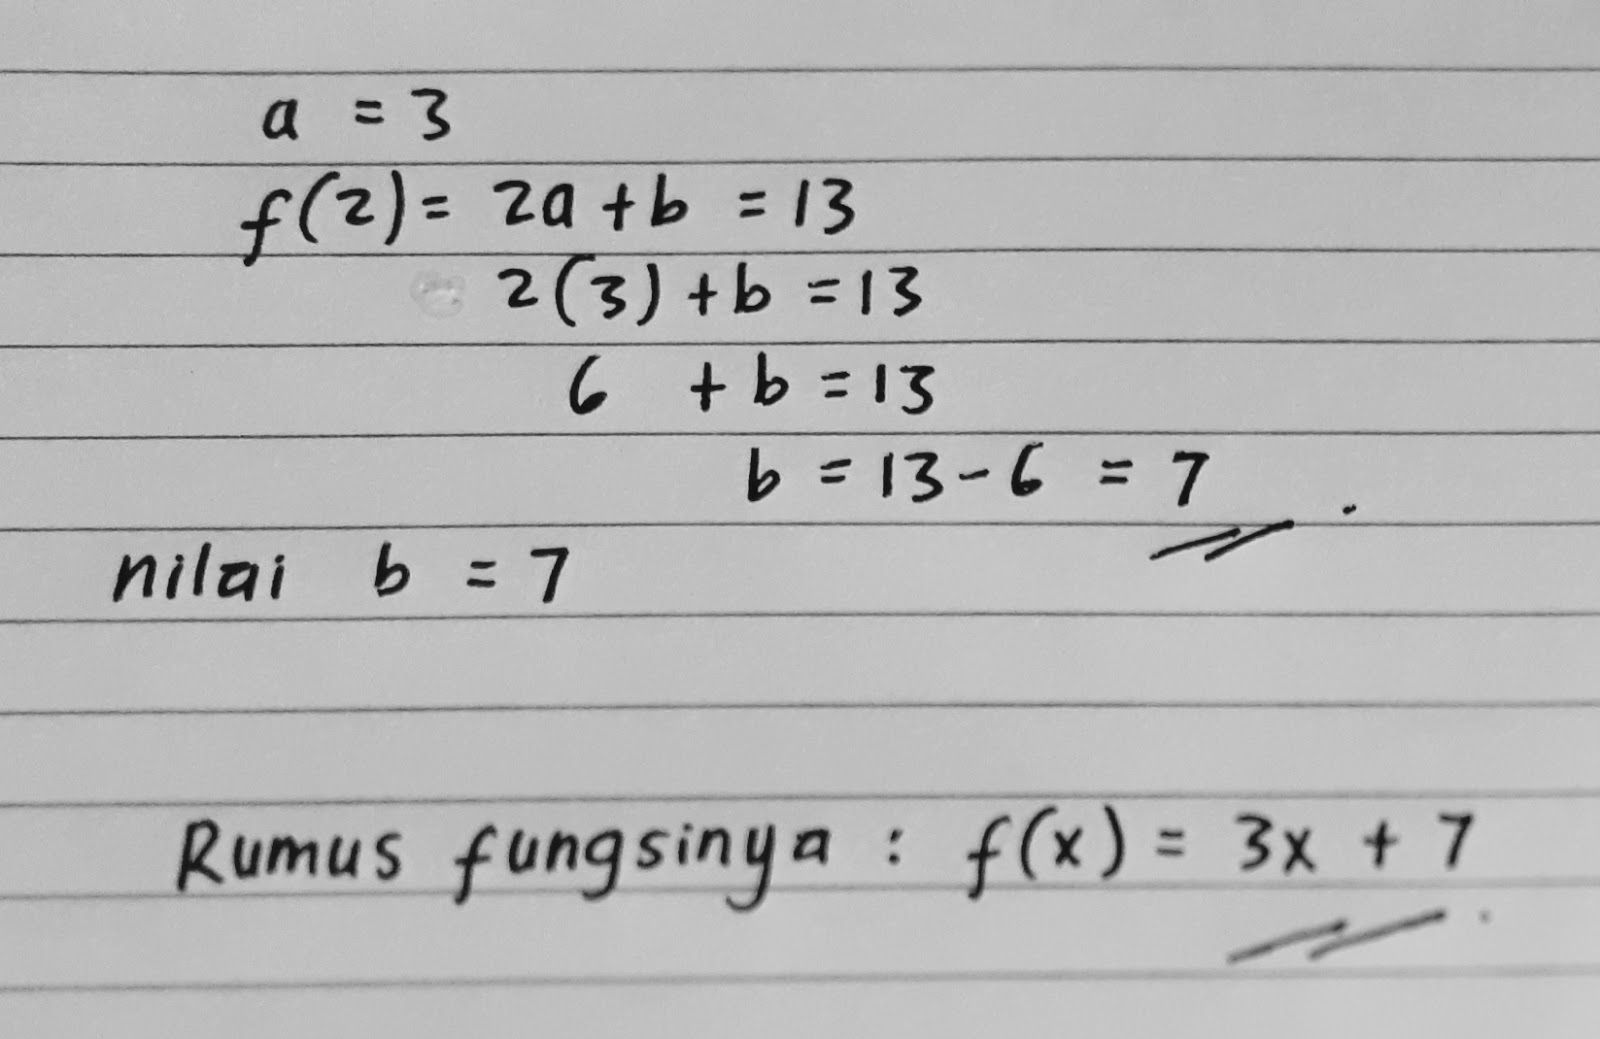 a = 3
f(2) = 2a + b = 13
2(3) + b = 13
6 + b = 13
b = 13 - 6 = 7 .
nilai b = 7
Rumus fungsinya : f(x) = 3x + 7 .